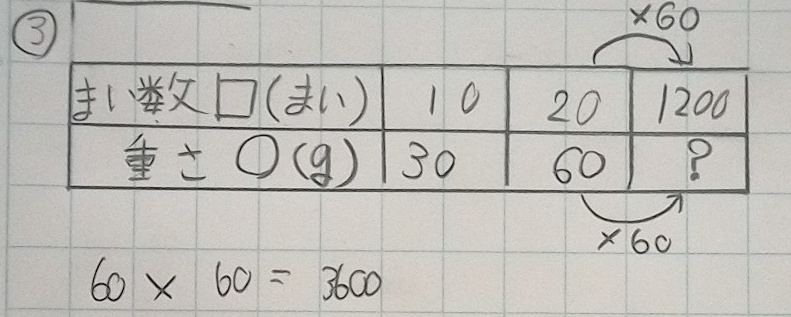 ③
×60
まい数 □(まい) 10 20 1200
重さ ○(g) 30 60 ?
×60
60 × 60 = 3600